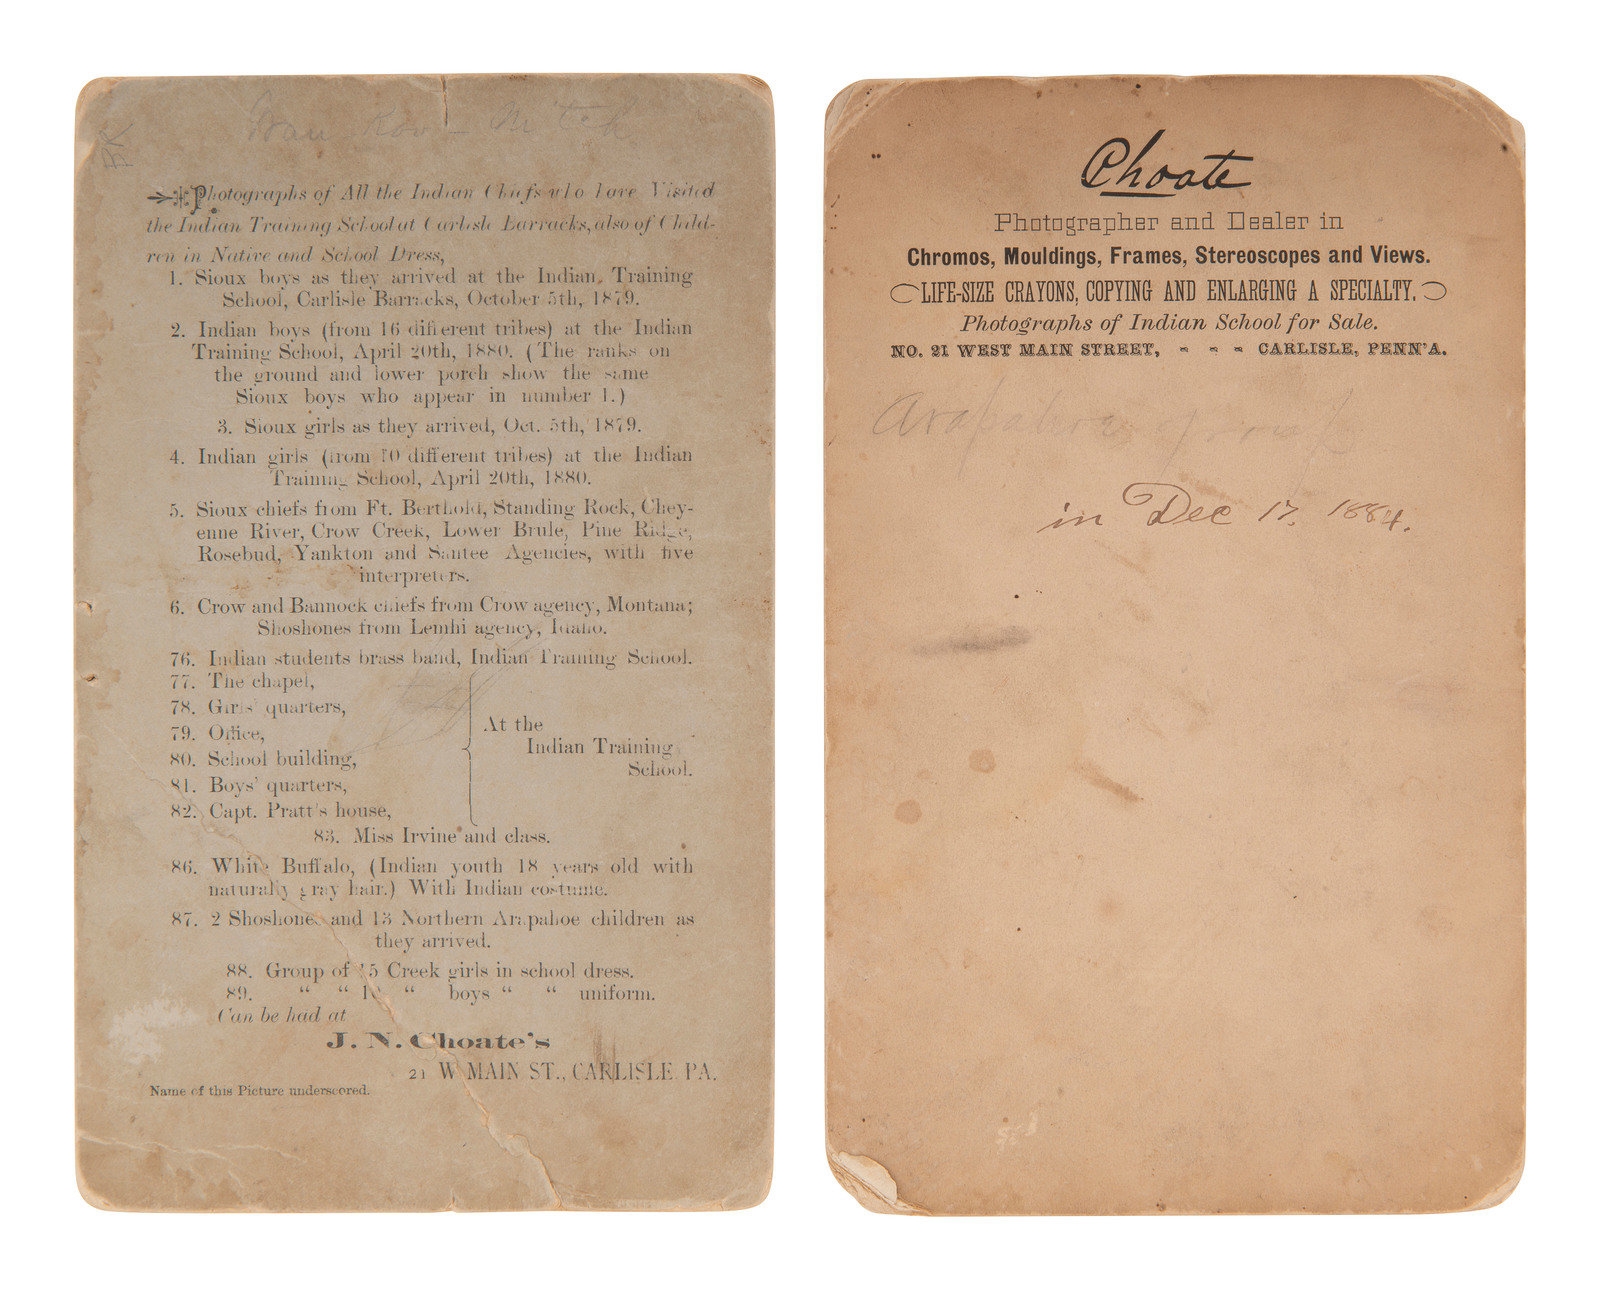 Photographs of All the Indian Chiefs who have Visited
the Indian Training School at Carlisle Barracks, also of Child-
ren in Native and School Dress,
1. Sioux boys as they arrived at the Indian Training
School, Carlisle Barracks, October 5th, 1879.
2. Indian boys (from 16 different tribes) at the Indian
Training School, April 20th, 1880. (The ranks on
the ground and lower porch show the same
Sioux boys who appear in number 1.)
3. Sioux girls as they arrived, Oct. 5th, 1879.
4. Indian girls (from 10 different tribes) at the Indian
Training School, April 20th, 1880.
5. Sioux chiefs from Ft. Berthold, Standing Rock, Chey-
enne River, Crow Creek, Lower Brule, Pine Ridge,
Rosebud, Yankton and Santee Agencies, with five
interpreters.
6. Crow and Bannock chiefs from Crow agency, Montana;
Shoshones from Lemhi agency, Idaho.
76. Indian students brass band, Indian Training School.
77. The chapel,
78. Girls' quarters,
79. Office,
80. School building,
81. Boys' quarters,
82. Capt. Pratt's house,
At the
Indian Training
School.
83. Miss Irvine and class.
86. White Buffalo, (Indian youth 18 years old with
naturally gray hair.) With Indian costume.
87. 2 Shoshones and 13 Northern Arapahoe children as
they arrived.
88. Group of 15 Creek girls in school dress.
89. “ “ 10 “ boys “ “ uniform.
Can be had at
J. N. Choate's
21 W MAIN ST., CARLISLE PA.
Name of this Picture underscored.
Choate
Photographer and Dealer in
Chromos, Mouldings, Frames, Stereoscopes and Views.
LIFE-SIZE CRAYONS, COPYING AND ENLARGING A SPECIALTY.
Photographs of Indian School for Sale.
NO. 21 WEST MAIN STREET, - - - CARLISLE, PENN'A.
Arapahoe group
in Dec 17. 1884.